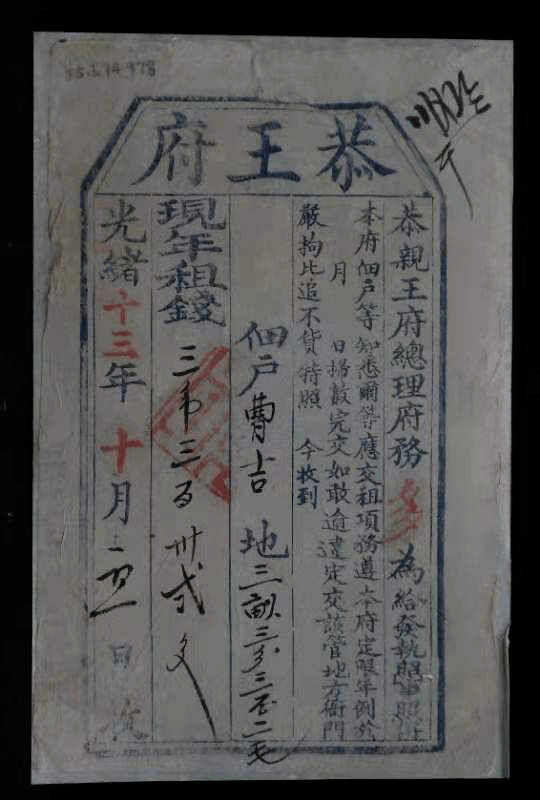 55.2.14978
恭王府
恭親王府總理府務多為給發執照事照得
本府佃戶等知悉爾等應交租項務遵本府定限年例於
月 日掃數完交如敢逾違定交該管地方衙門
嚴拘比追不貸特照 今收到
佃戶曹吉 地三畝三分三厘二毛
現年租錢 三千三百卅弍文
光緒十三年十月 日